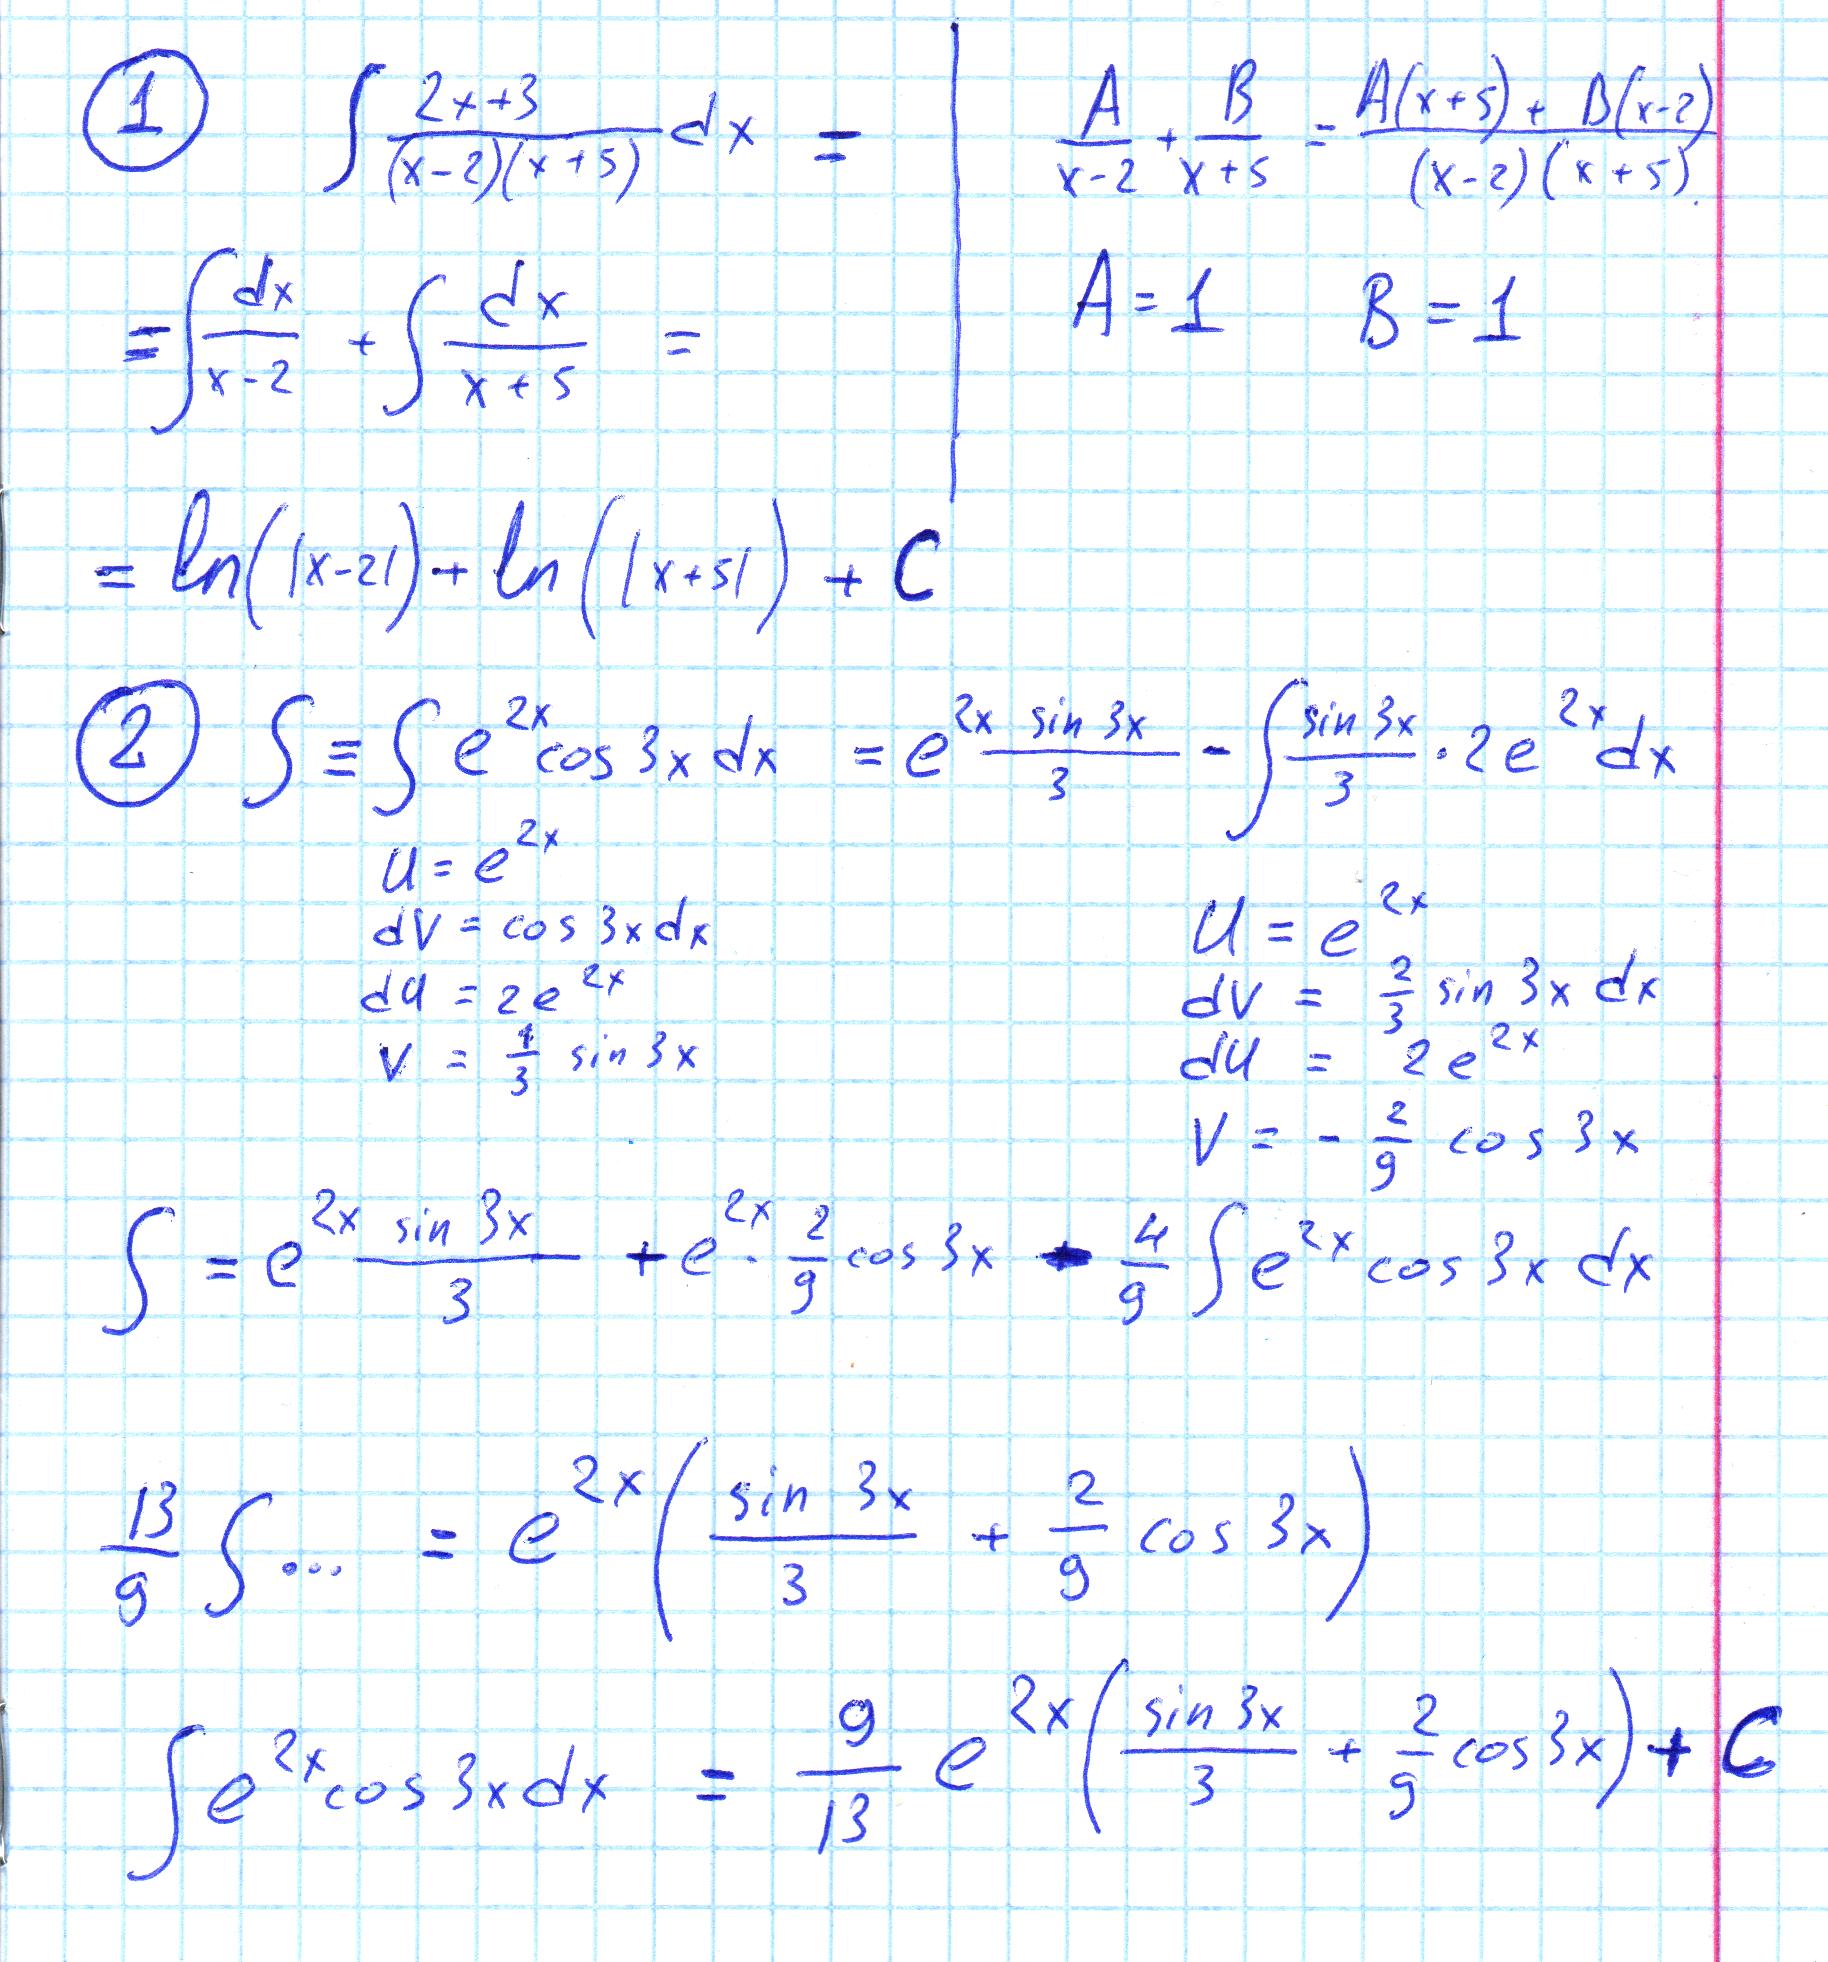 ① ∫ (2x+3)/((x-2)(x+5)) dx =
A/(x-2) + B/(x+5) = (A(x+5) + B(x-2))/((x-2)(x+5))
A = 1 B = 1
= ∫ dx/(x-2) + ∫ dx/(x+5) =
= ln(|x-2|) + ln(|x+5|) + C
② ∫ ≡ ∫ e^{2x} cos 3x dx = e^{2x} (sin 3x)/3 - ∫ (sin 3x)/3 · 2e^{2x} dx
u = e^{2x}
dv = cos 3x dx
du = 2e^{2x}
v = 1/3 sin 3x
u = e^{2x}
dv = 2/3 sin 3x dx
du = 2e^{2x}
v = - 2/9 cos 3x
∫ = e^{2x} (sin 3x)/3 + e^{2x} · 2/9 cos 3x - 4/9 ∫ e^{2x} cos 3x dx
13/9 ∫ ... = e^{2x} ( (sin 3x)/3 + 2/9 cos 3x )
∫ e^{2x} cos 3x dx = 9/13 e^{2x} ( (sin 3x)/3 + 2/9 cos 3x ) + C